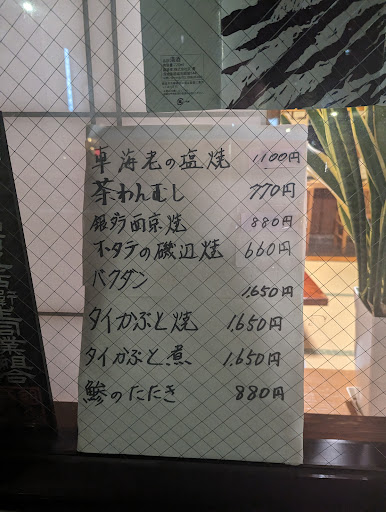 車海老の塩焼 1100円
茶わんむし 770円
銀ダラ西京焼 880円
ホタテの磯辺焼 660円
バクダン 1,650円
タイかぶと焼 1,650円
タイかぶと煮 1,650円
鯵のたたき 880円